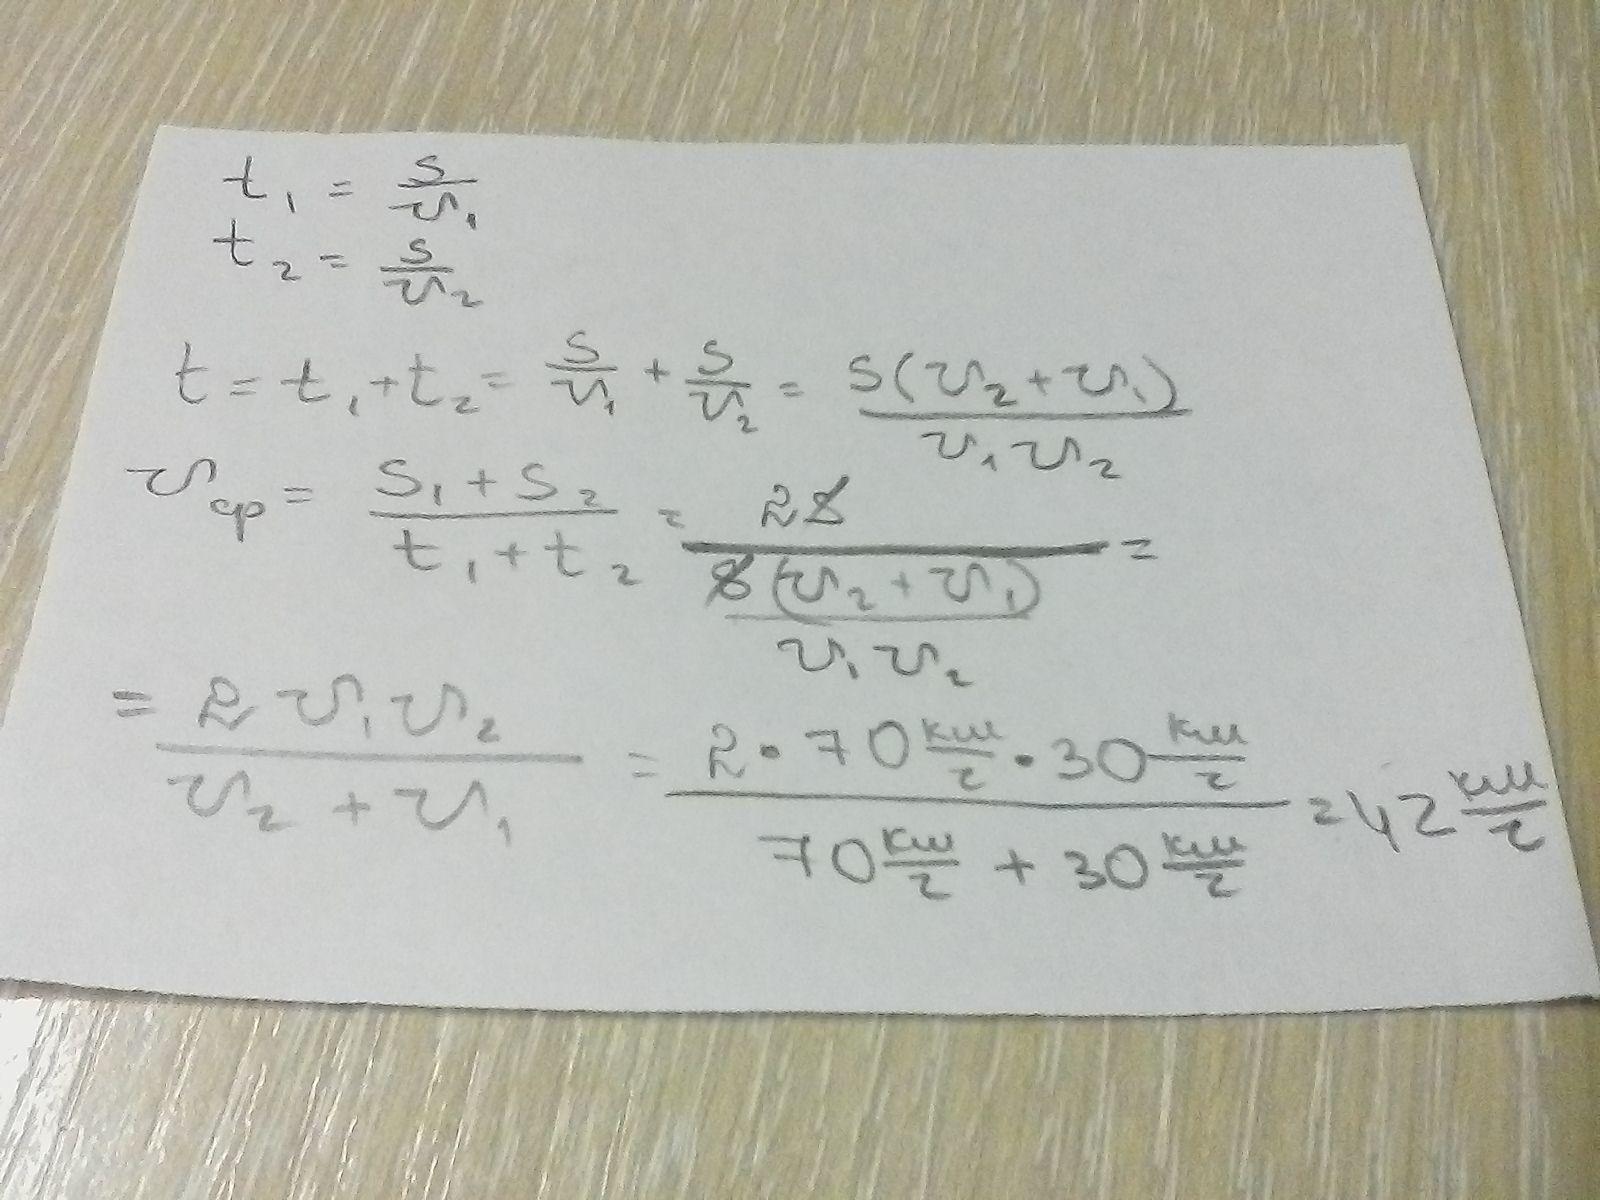 t₁ = s/v₁
t₂ = s/v₂
t = t₁ + t₂ = s/v₁ + s/v₂ = s(v₂ + v₁)/v₁v₂
vср = (s₁ + s₂)/(t₁ + t₂) = 2s/(s(v₂ + v₁)/v₁v₂) =
= 2v₁v₂/(v₂ + v₁) = (2 · 70 км/г · 30 км/г)/(70 км/г + 30 км/г) = 42 км/г